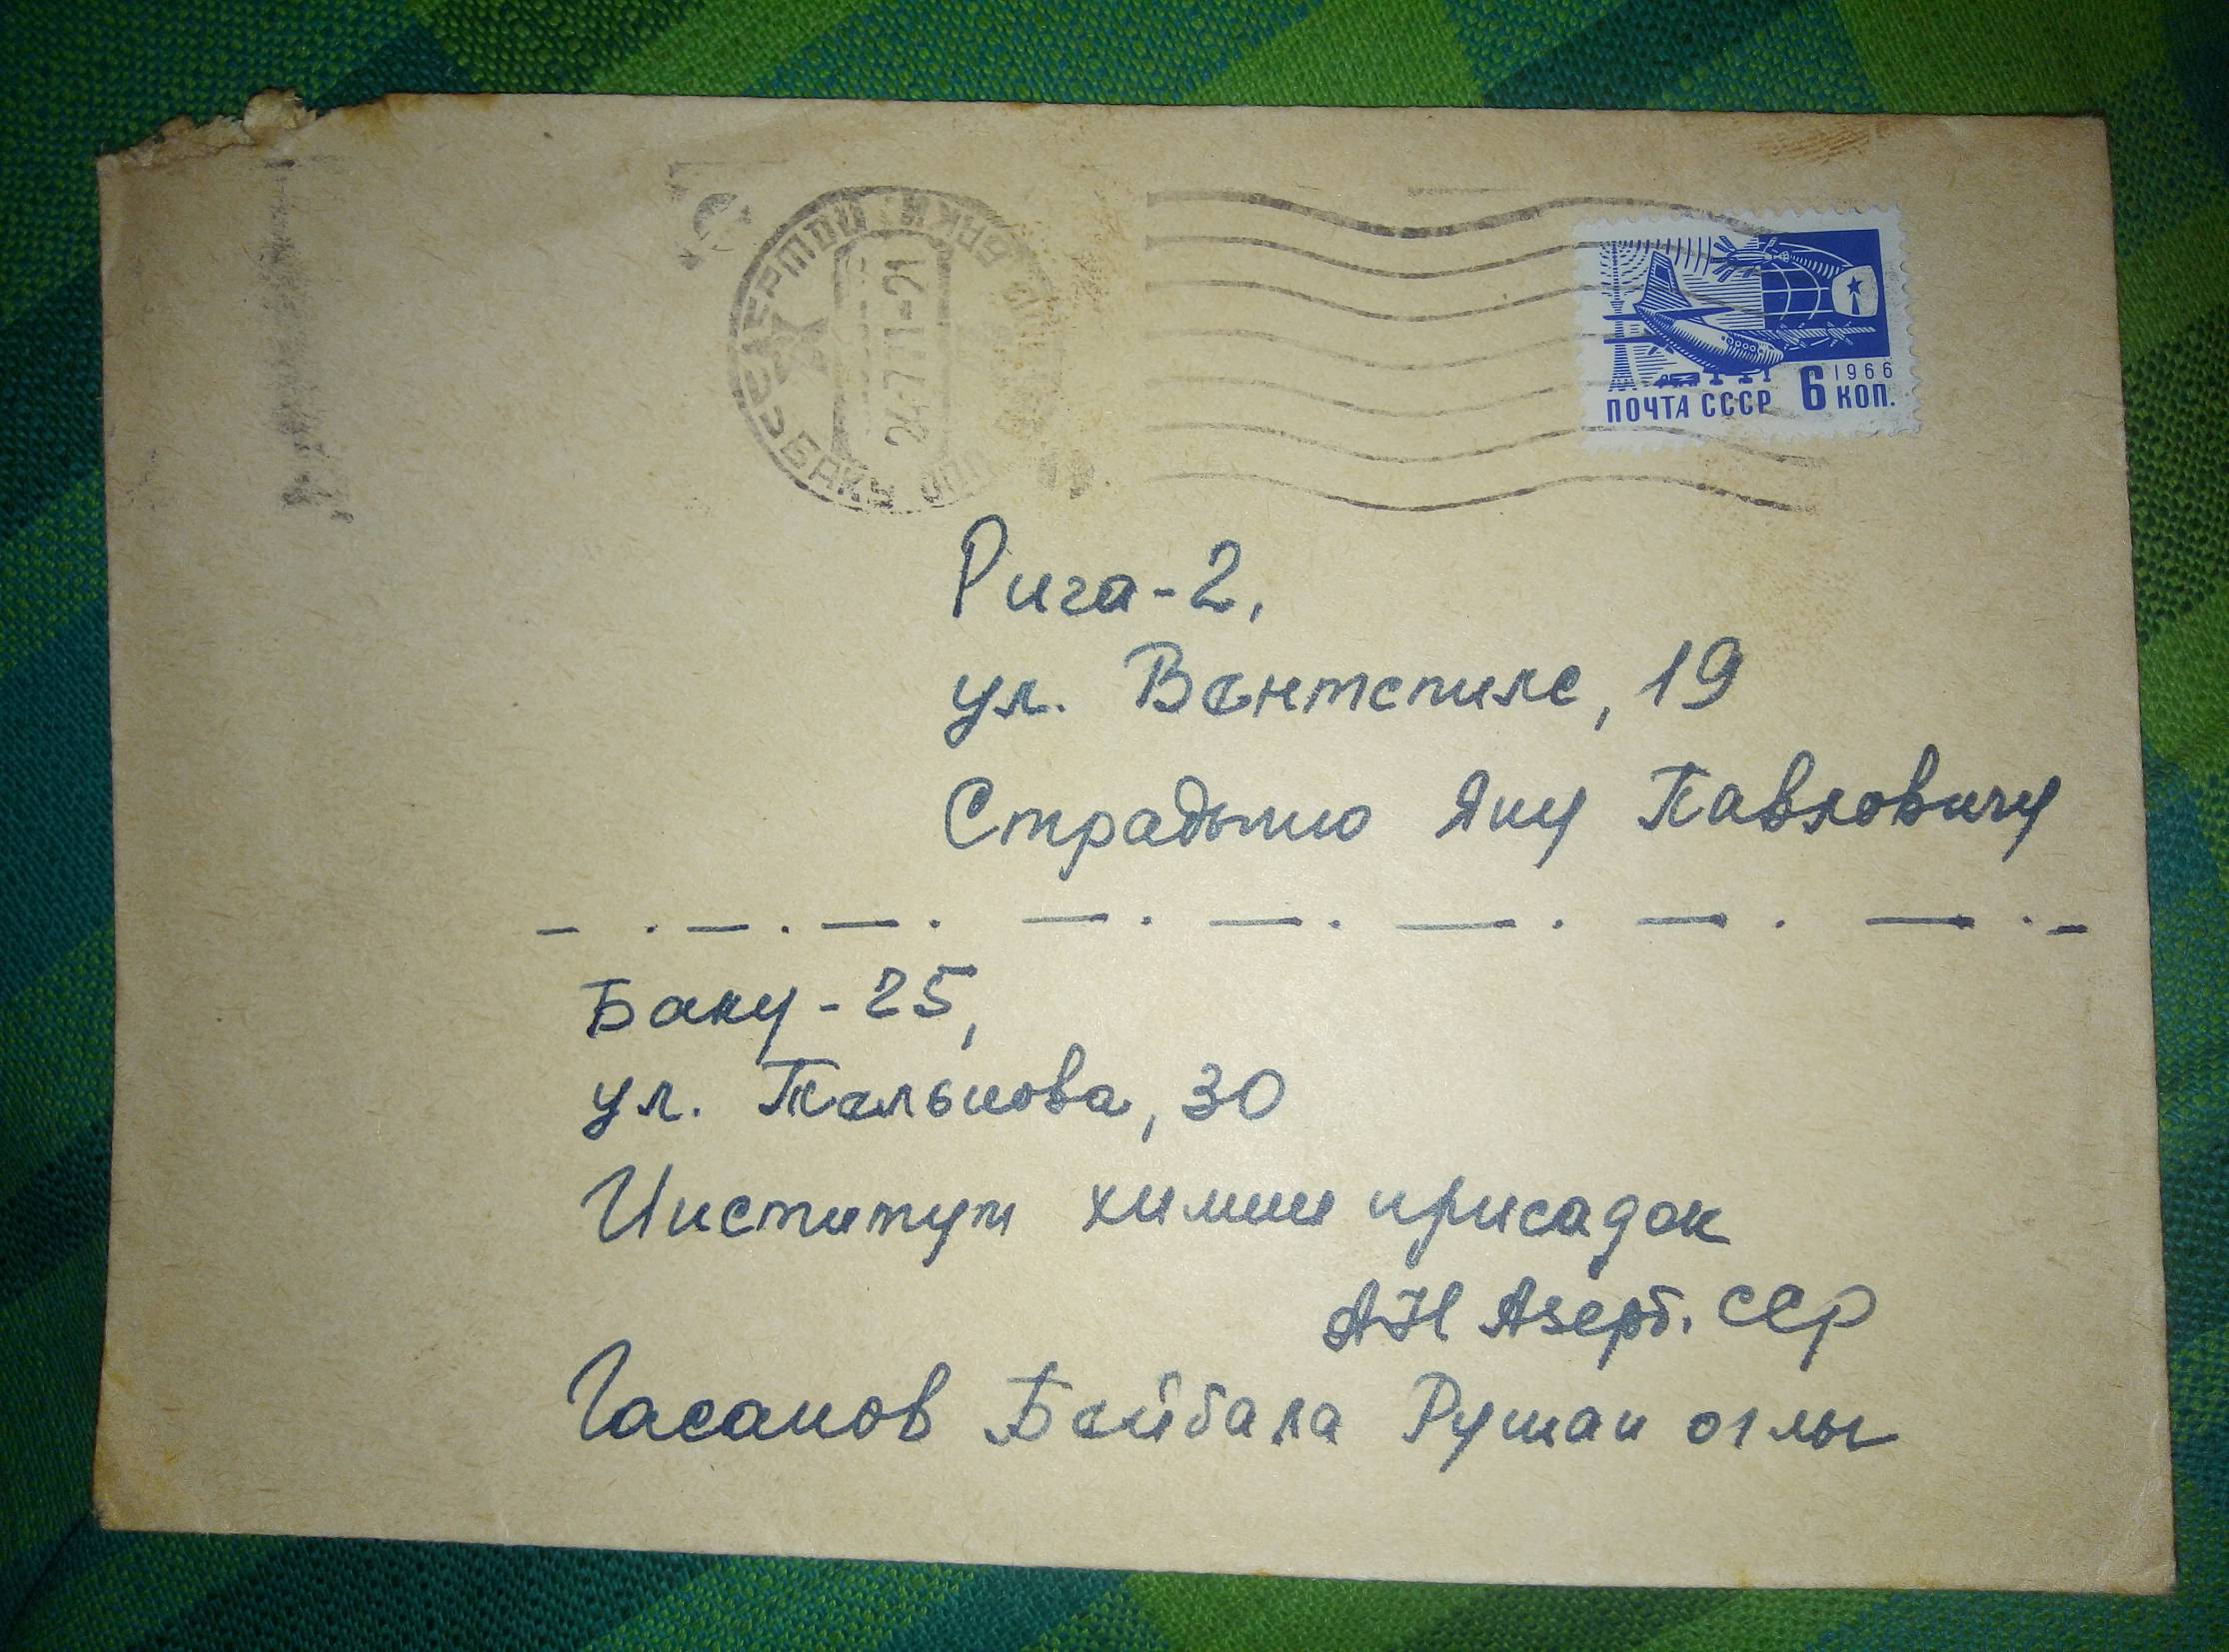 БАКИ ПОЧТАМТЫ
БАКУ
24-7 71-21
1966
ПОЧТА СССР 6 КОП.
Рига-2,
ул. Вентспилс, 19
Страдыню Яну Павловичу
Баку-25,
ул. Тельнова, 30
Институт химии присадок
АН Азерб. ССР
Гасанов Бейбала Рушан оглы